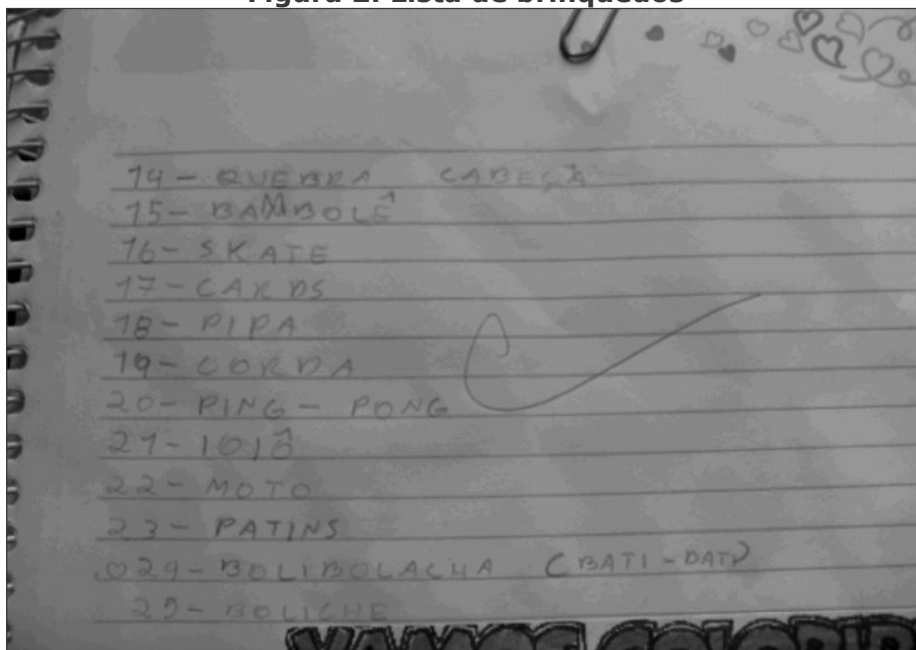 Figura 2: Lista de brinquedos
14 - QUEBRA CABEÇA
15 - BAMBOLÊ
16 - SKATE
17 - CARDS
18 - PIPA
19 - CORDA
20 - PING - PONG
21 - IOIÔ
22 - MOTO
23 - PATINS
24 - BOLIBOLACHA (BATI - BATI)
25 - BOLICHE
VAMOS COLORIR